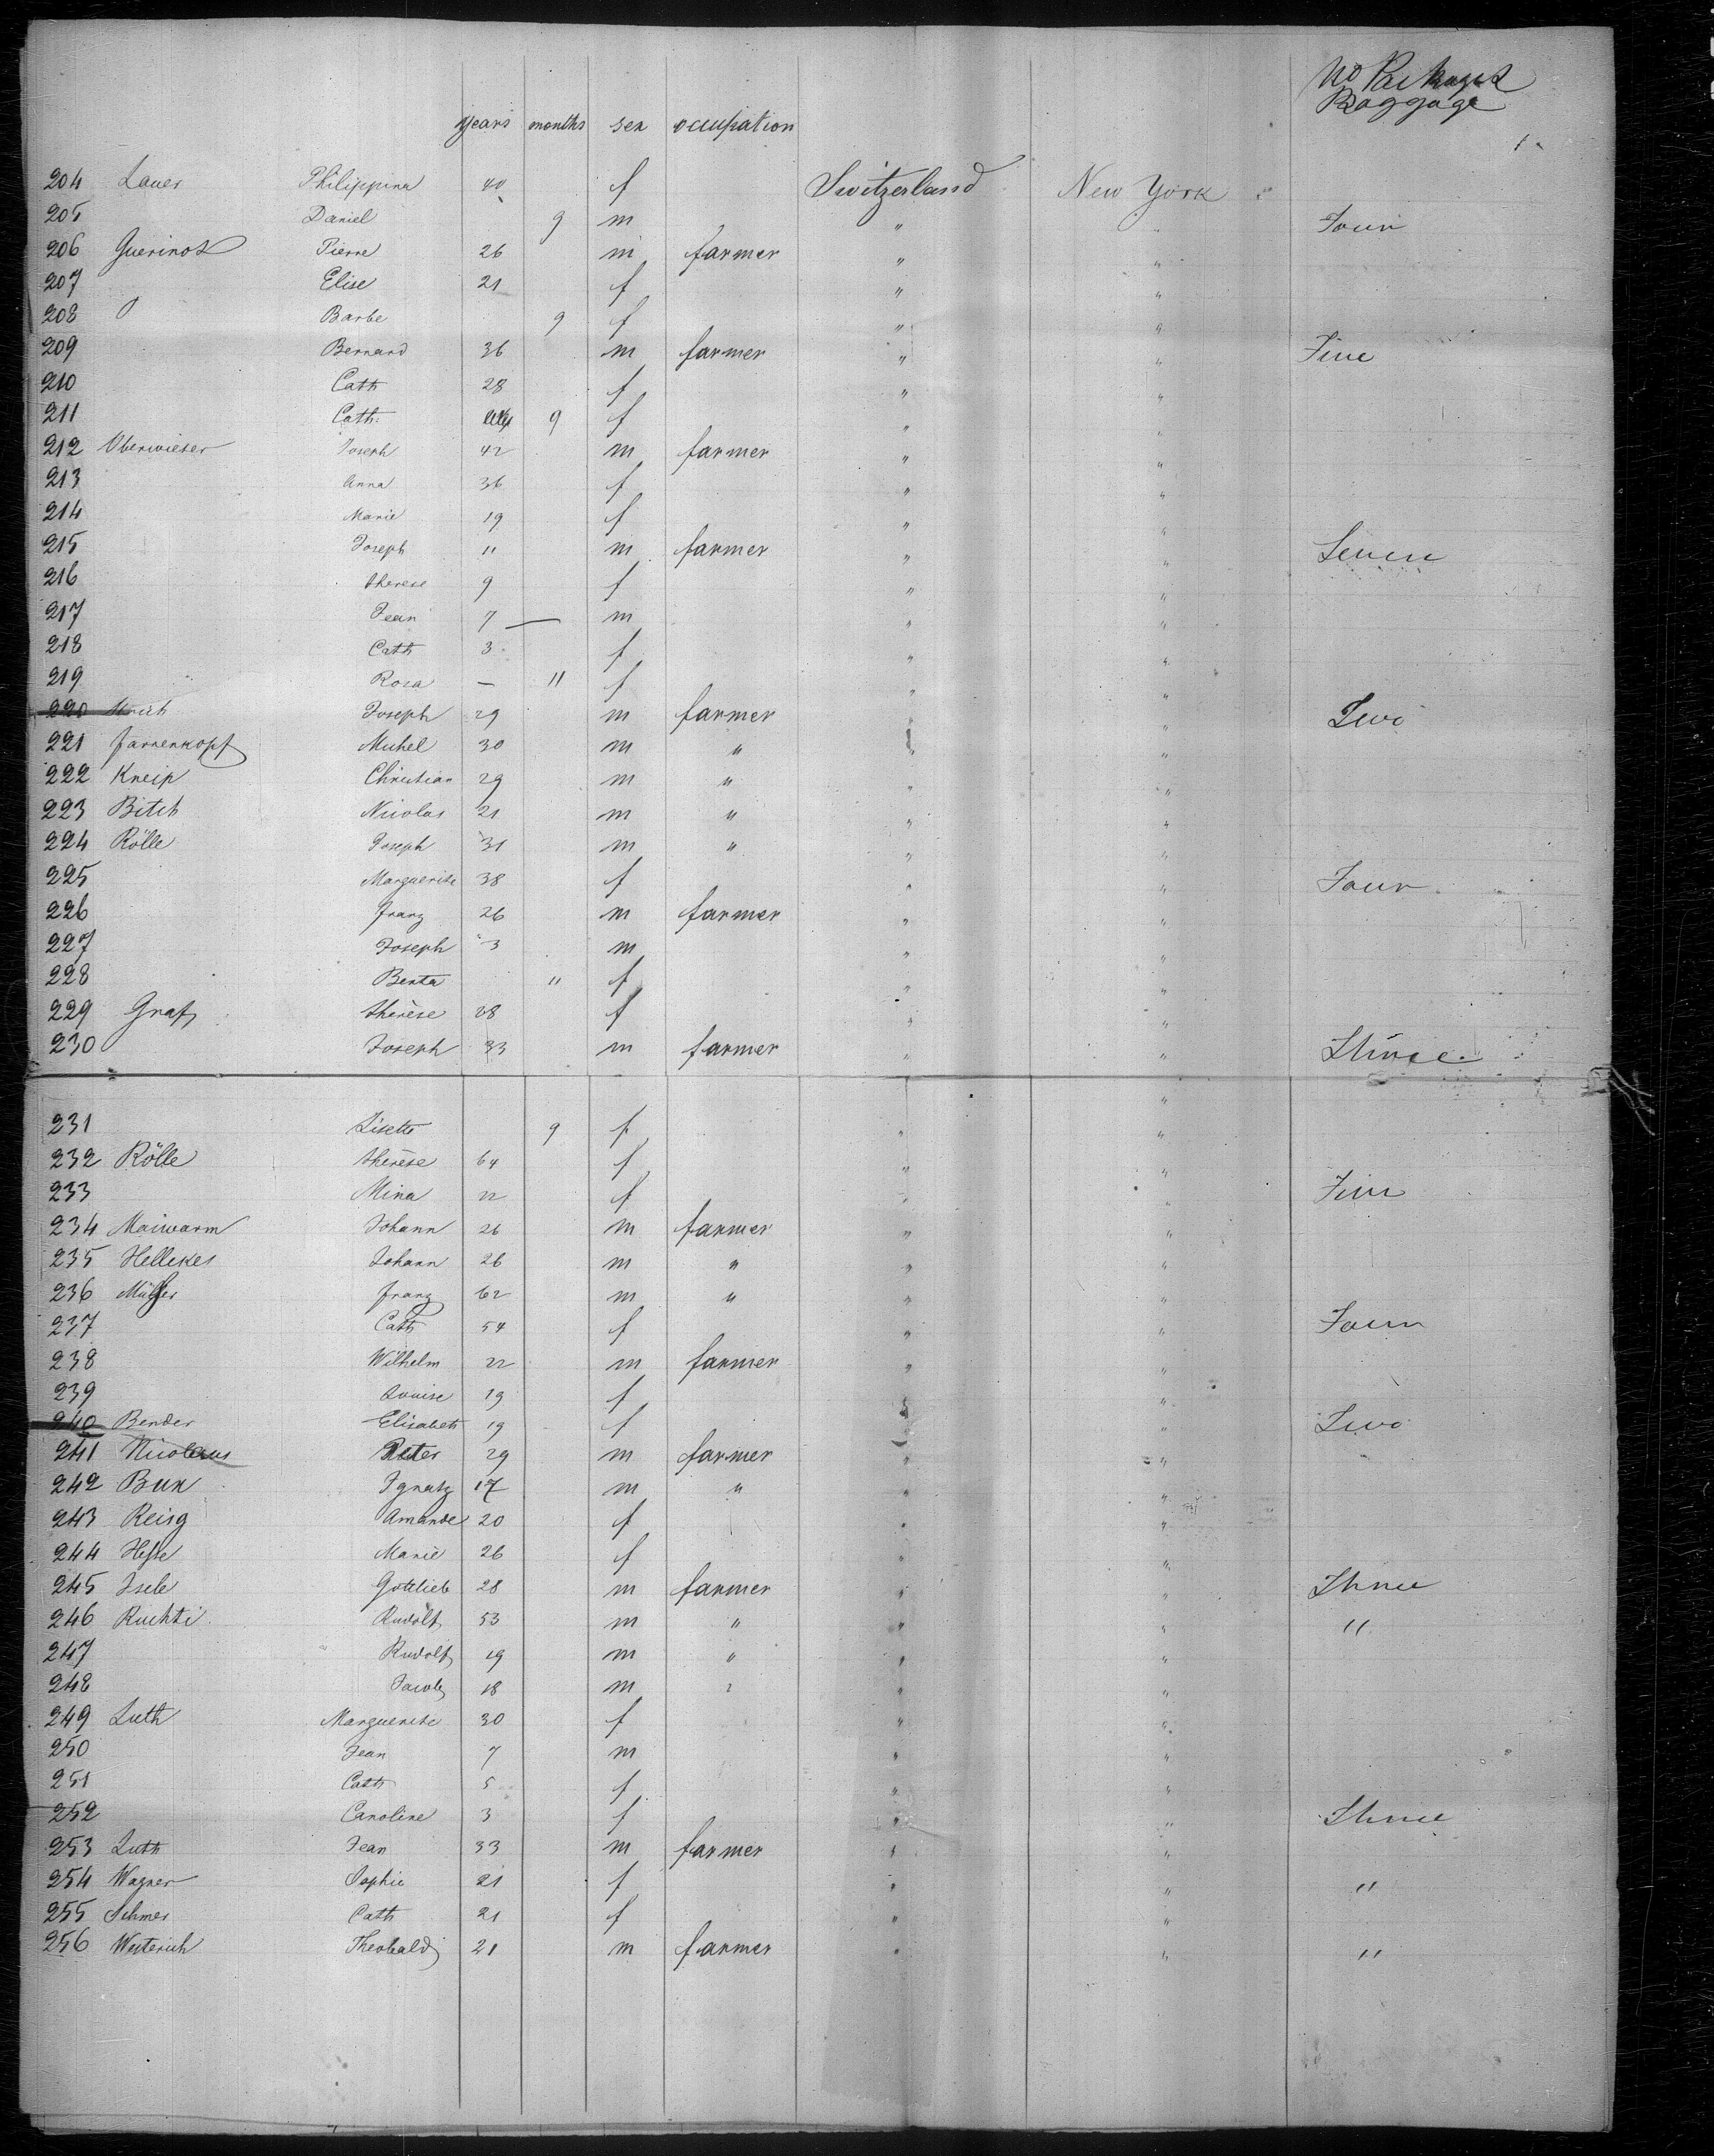 No Packages
Baggage
years months sex occupation
204 Lauer Philippina 40 f Switzerland New York
205 Daniel 9 m " " Four
206 Guerinot Pierre 26 m farmer " "
207 Elise 21 f " "
208 Barbe 9 f " "
209 Bernard 36 m farmer " " Five
210 Cath 28 f " "
211 Cath. 9 f " "
212 Oberwieser Joseph 42 m farmer " "
213 Anna 36 f " "
214 Marie 19 f " "
215 Joseph 11 m farmer " " Seven
216 therese 9 f " "
217 Jean 7 — m " "
218 Cath 3 f " "
219 Rosa — 11 f " "
220 Joseph 29 m farmer " " Two
221 Farrenkopf Michel 30 m " " "
222 Kneip Christian 29 m " " "
223 Bitch Nicolas 21 m " " "
224 Rölle Joseph 31 m " " "
225 Marguerite 38 f " " Four
226 Franz 26 m farmer " "
227 Joseph 3 m " "
228 Berta 11 f " "
229 Graf therèse 28 f " "
230 Joseph 33 m farmer " " Three
"
231 Lisette 9 f " "
232 Rölle therèse 64 f " "
233 Mina 22 f " " Five
234 Maiwarm Johann 26 m farmer " "
235 Hellekes Johann 26 m " " "
236 Müller Franz 62 m " " "
237 Cath 54 f " " Four
238 Wilhelm 22 m farmer " "
239 Louise 19 f " "
240 Bender Elisabeth 19 f " " Two
241 Nicolaus Peter 29 m farmer " "
242 Bux Ignatz 17 m " " "
243 Reisg Amande 20 f " "
244 Hesse Marie 26 f " "
245 Isele Gottlieb 28 m farmer " " Three
246 Ruchti Rudolf 53 m " " " "
247 Rudolf 19 m " " "
248 Jacob 18 m " " "
249 Luth Marguerite 30 f " "
250 Jean 7 m " "
251 Cath 5 f " "
252 Caroline 3 f " " Three
253 Luth Jean 33 m farmer " "
254 Wagner Sophie 21 f " " "
255 Schmer Cath 21 f " "
256 Westerich Theobald 21 m farmer " " "